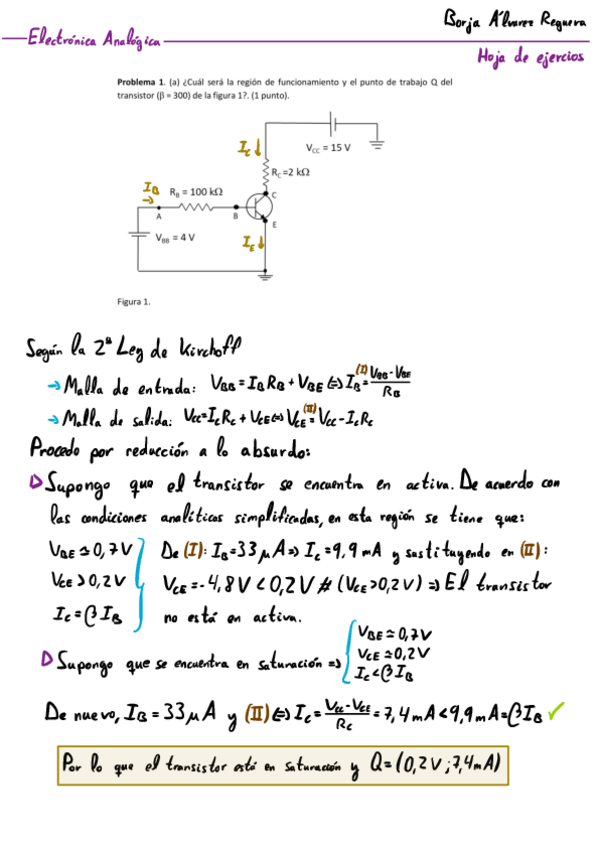 Borja Álvarez Reguera
Electrónica Analógica
Hoja de ejercios
Problema 1. (a) ¿Cuál será la región de funcionamiento y el punto de trabajo Q del
transistor (β = 300) de la figura 1?. (1 punto).
I_C ↓
V_CC = 15 V
R_C=2 kΩ
I_B →
R_B = 100 kΩ
C
A
B
E
V_BB = 4 V
I_E ↓
Figura 1.
Según la 2ª Ley de Kirchoff
→ Malla de entrada: V_BB = I_B R_B + V_BE ⇔ I_B =^(I) (V_BB - V_BE)/R_B
→ Malla de salida: V_CC = I_C R_C + V_CE ⇔ V_CE =^(II) V_CC - I_C R_C
Procedo por reducción a lo absurdo:
▷ Supongo que el transistor se encuentra en activa. De acuerdo con
las condiciones analíticas simplificadas, en esta región se tiene que:
V_BE ≃ 0,7V De (I): I_B = 33 μA ⇒ I_C = 9,9 mA y sustituyendo en (II):
V_CE > 0,2V V_CE = -4,8V < 0,2V # (V_CE > 0,2V) ⇒ El transistor
I_C = β I_B no está en activa.
▷ Supongo que se encuentra en saturación ⇒ { V_BE ≃ 0,7V
V_CE ≃ 0,2V
I_C < β I_B
De nuevo, I_B = 33 μA y (II) ⇔ I_C = (V_CC - V_CE)/R_C = 7,4 mA < 9,9 mA = β I_B ✓
Por lo que el transistor está en saturación y Q = (0,2V ; 7,4mA)